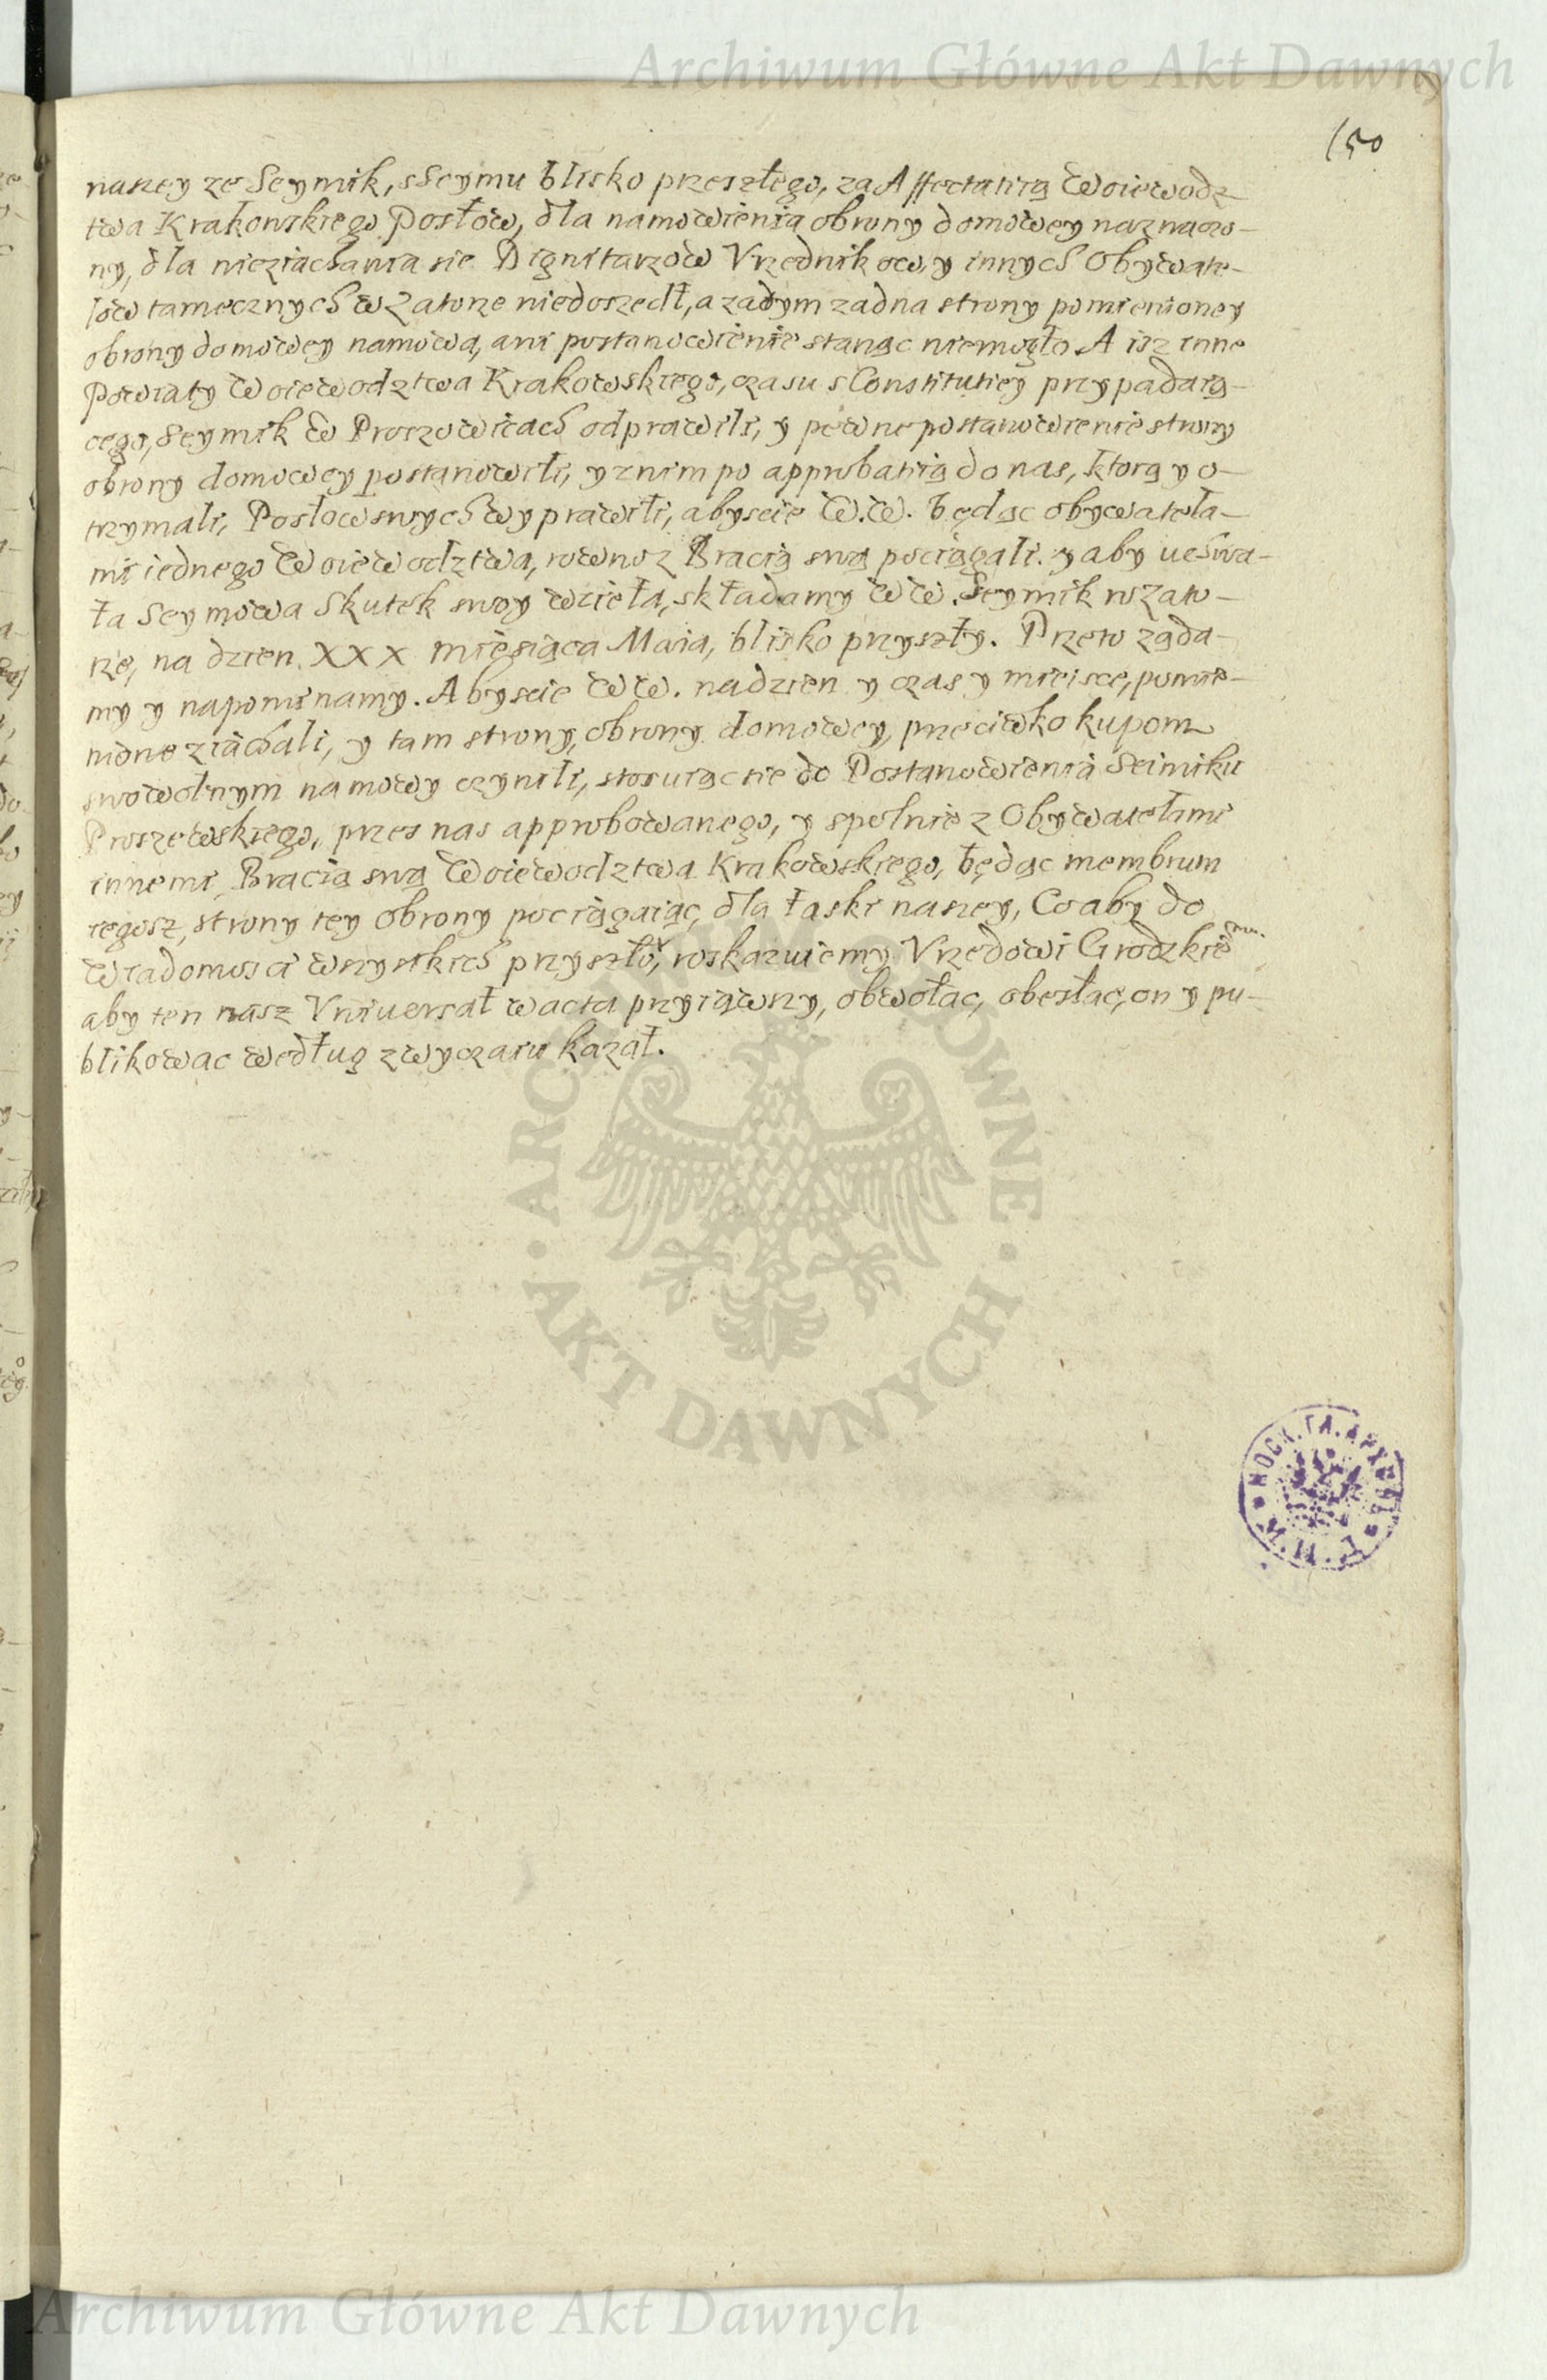 Archiwum Główne Akt Dawnych
150
naszey ze Seymik, sSeymu blisko przeszłego, za Affectatią Woiewodz-
twa Krakowskiego Posłow, dla namowienia obrony domowey naznaczo-
ny, dla nieziachania sie Dignitarzow Vrzednikow, y innych Obywate-
low tamecznych w Zatorze niedoszedł, a zadym zadna strony pomienioney
obrony domowey namowa, ani postanowienie stanąc niemogło. A isz inne
Powiaty Woiewodztwa Krakowskiego, czasu sConstitutiey przypadaią-
cego, Seymik w Proszowicach odprawili, y pewne postanowienie strony
obrony domowey postanowili, y znim po approbatią do nas, ktorą y o-
trzymali, Posłow swych wyprawili, abyscie W.W. będąc obywatela-
mi iednego Woiewodztwa, rowno z Bracią swą pociągali. y aby uchwa-
ła Seymowa skutek swoy wzieła, składamy WW. Seymik w Zato-
rze, na dzien XXX miesiąca Maia, blisko przyszły. Przeto ząda-
my y napominamy. Abyscie WW. nadzien y czas y mieisce, pomie-
nione ziachali, y tam strony, obrony domowey, przeciwko kupom
swowolnym namowy czynili, stosuiąc sie do Postanowienia Seimiku
Proszewskiego, przes nas approbowanego, y spolnie z Obywatelami
innemi, Bracią swą Woiewodztwa Krakowskiego, będąc membrum
tegosz, strony tey obrony pociągaiąc, dla łaski naszey, Co aby do
wiadomosci wszystkich przyszło, roskazuiemy Vrzedowi Grodzkiemu.
aby ten nasz Vniuersał w acta przyiąwszy, obwołac, obesłac, on y pu-
blikowac według zwyczaiu kazał.
ARCHIWUM GŁÓWNE
AKT DAWNYCH
МОСК. ГЛ. АРХИВЪ
М. И. Д.
Archiwum Główne Akt Dawnych